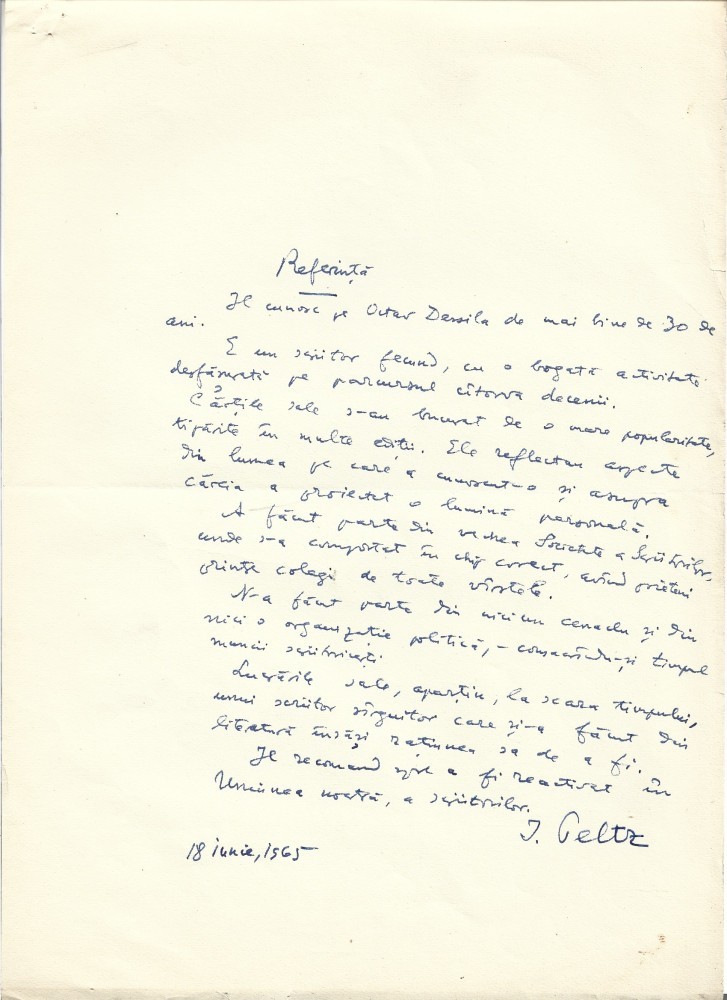 Referință
Il cunosc pe Octav Dessila de mai bine de 30 de
ani.
E un scriitor fecund, cu o bogată activitate
desfășurată pe parcursul cîtorva decenii.
Cărțile sale s-au bucurat de o mare popularitate,
tipărite în multe ediții. Ele reflectau aspecte
din lumea pe care a cunoscut-o și asupra
căreia a proiectat o lumină personală.
A făcut parte din vechea Societate a Scriitorilor,
unde s-a comportat în chip corect, avînd prieteni
printre colegi de toate vîrstele.
N-a făcut parte din niciun cenaclu și din
nici o organizație politică, - consacrîndu-și timpul
muncii scriitoricești.
Lucrările sale, aparțin, la scara timpului,
unui scriitor sîrguitor care și-a făcut din
literatură însăși rațiunea sa de a fi.
Il recomand spre a fi reactivat în
Uniunea noastră, a scriitorilor.
I. Peltz
18 iunie, 1965